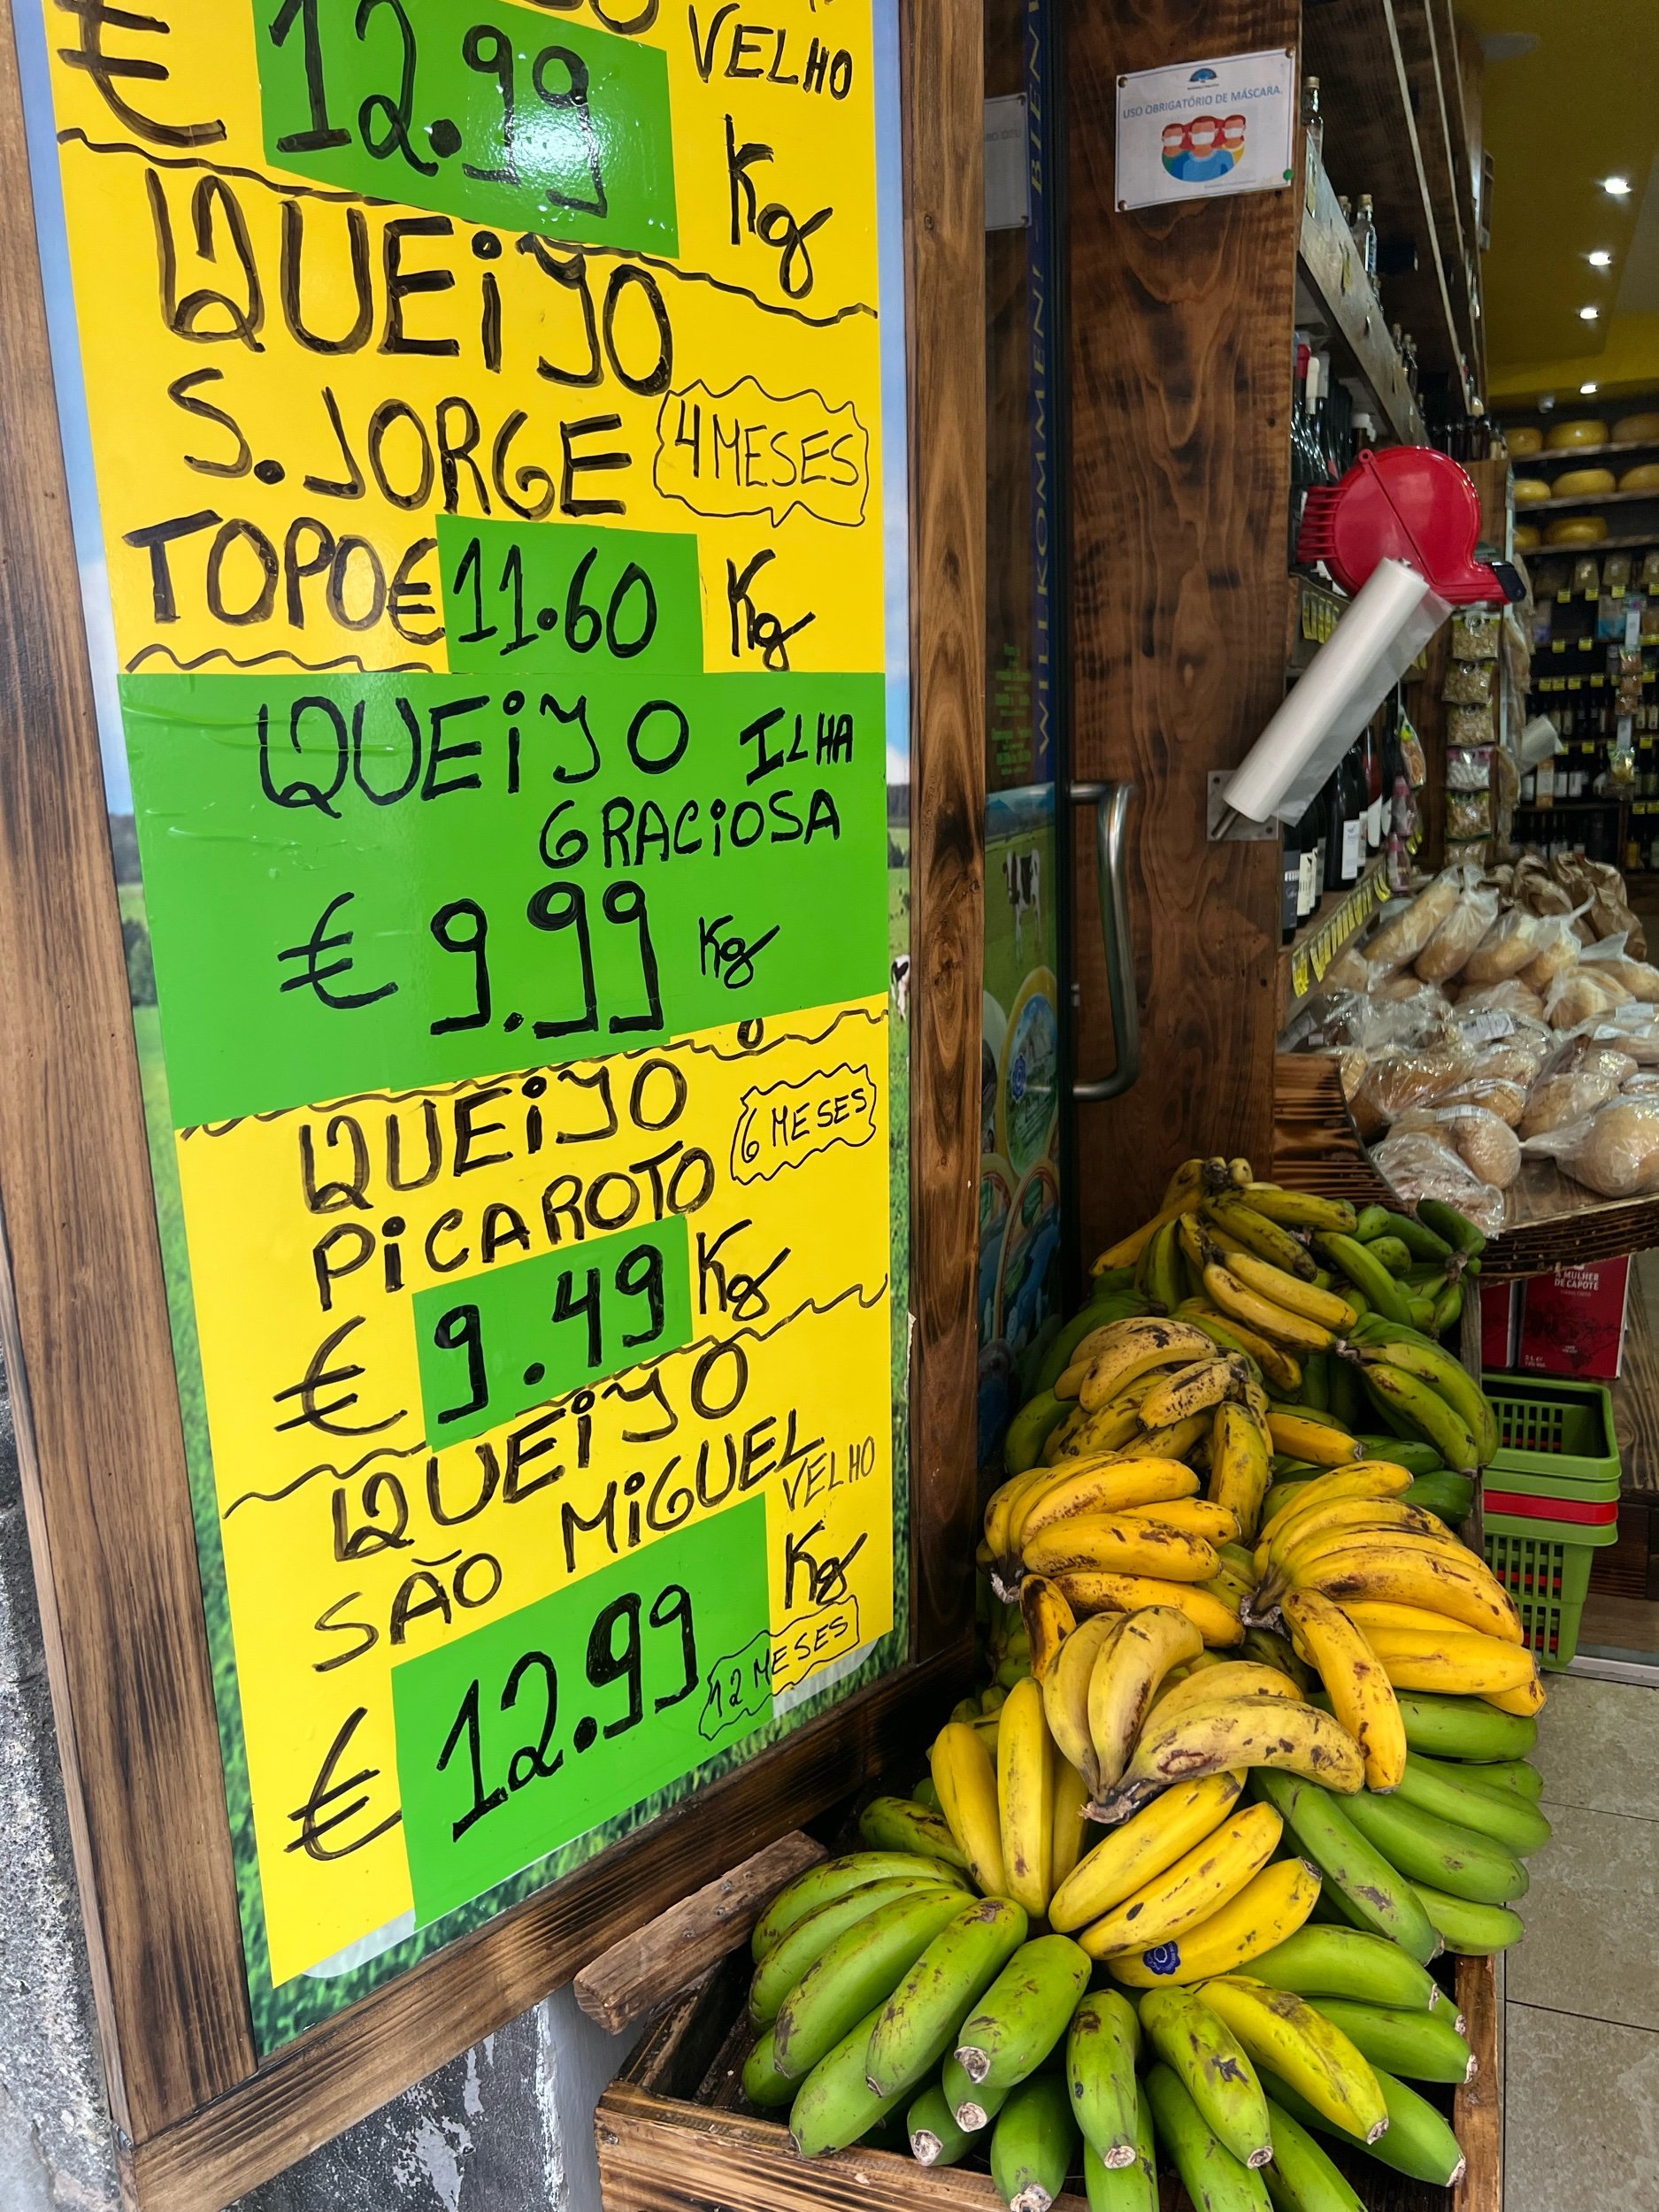 VELHO
€ 12.99 Kg
QUEIJO
S. JORGE 4 MESES
TOPO € 11.60 Kg
QUEIJO ILHA
GRACIOSA
€ 9.99 Kg
QUEIJO 6 MESES
PICAROTO
€ 9.49 Kg
QUEIJO
SÃO MIGUEL VELHO
€ 12.99 Kg
12 MESES
USO OBRIGATÓRIO DE MÁSCARA.
WILLKOMMEN! BIENV
A MULHER
DE CAPOTE